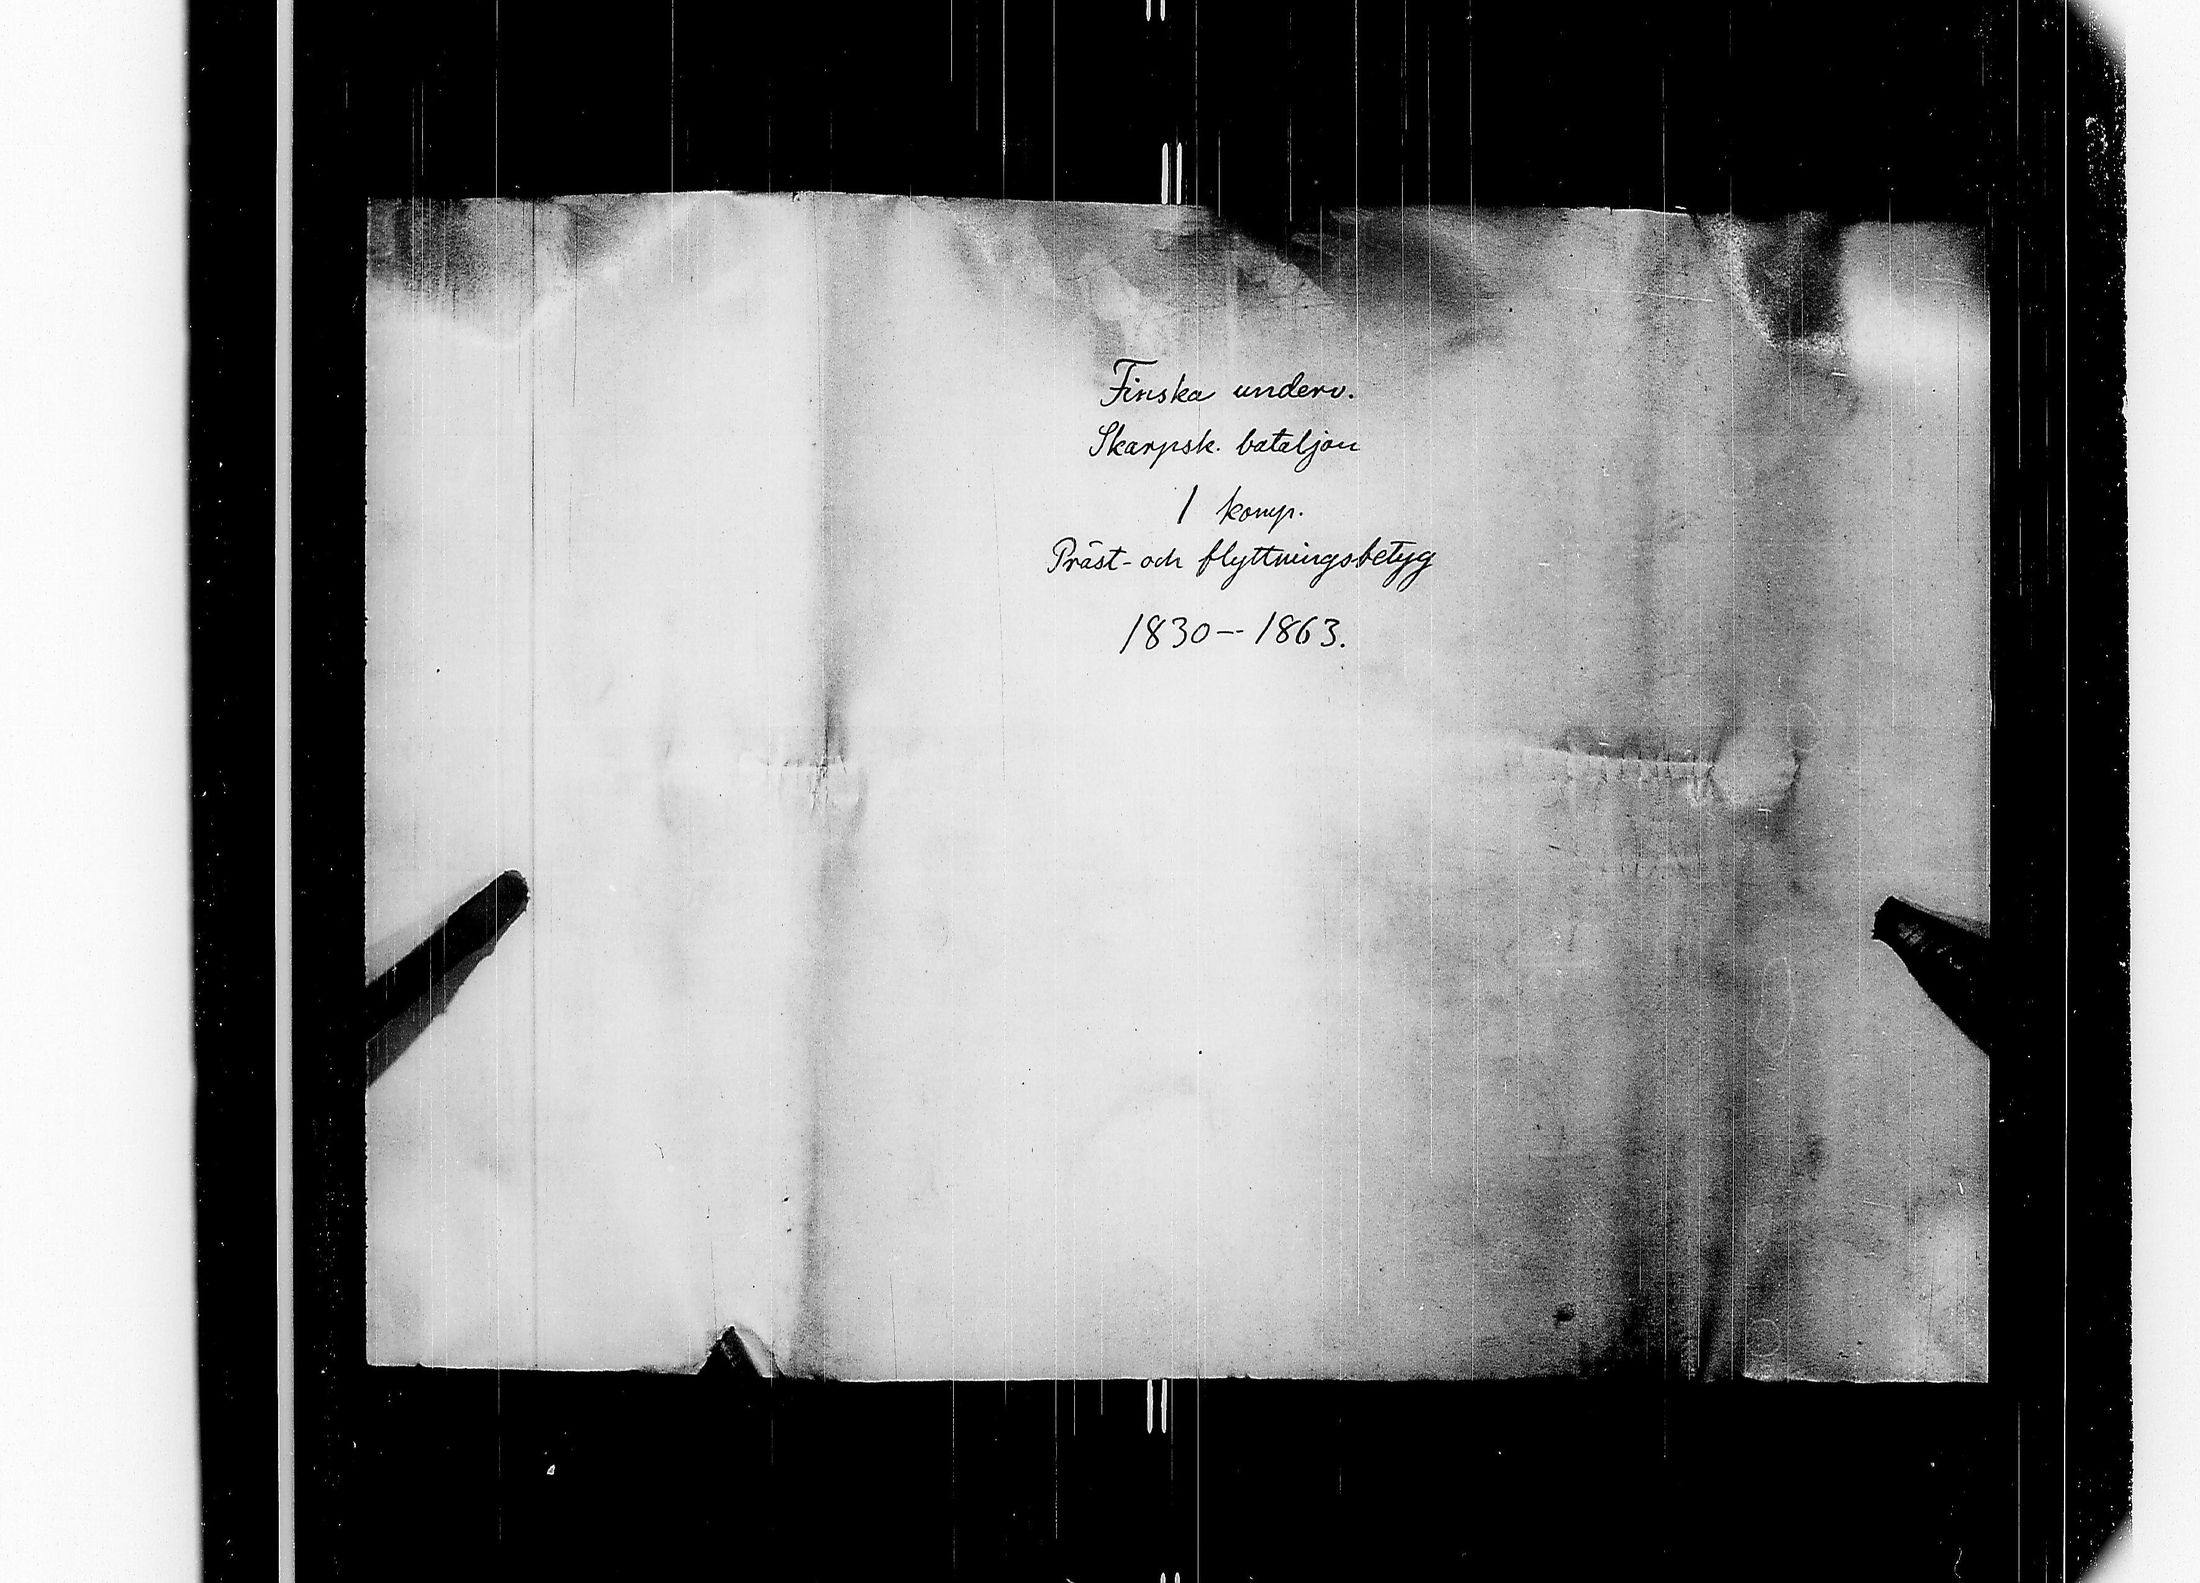 Finska underv.
Skarpsk. bataljon
1 komp.
Präst- och flyttningsbetyg
1830–1863.